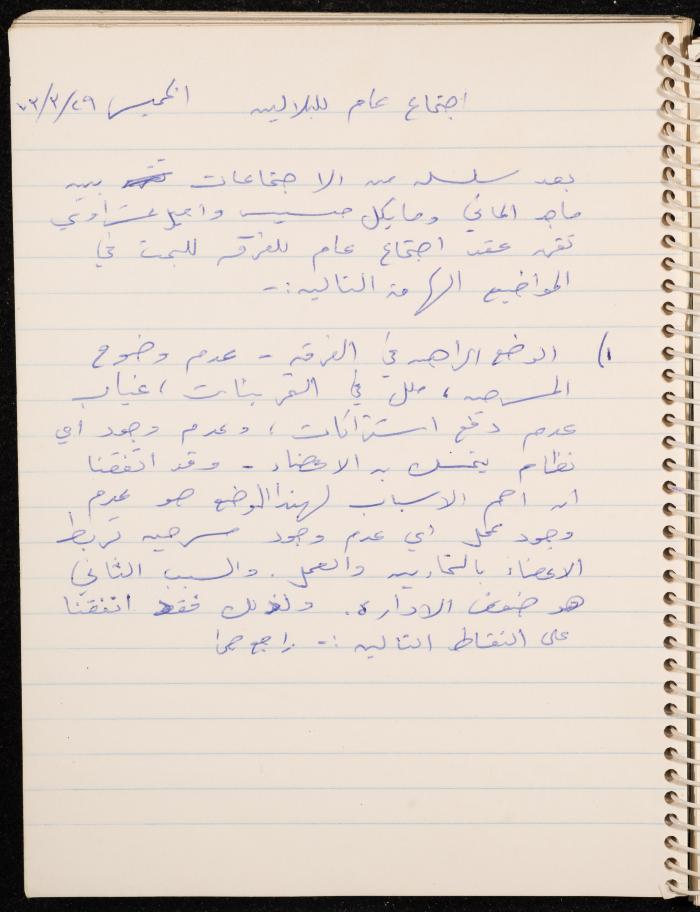 اجتماع عام للبلالين الخميس ٧٣/٣/٢٩
بعد سلسله من الاجتماعات بين
ماجد الماني ومايكل حسيب واميل عشراوي
تقرر عقد اجتماع عام للفرقه للبحث في
المواضيع الهامة التاليه :-
١) الوضع الراهن في الفرقه - عدم وضوح
المسرحيه ، ملل في التمرينات ، غياب
عدم دفع اشتراكات ، وعدم وجود اي
نظام يتمسك به الاعضاء - وقد اتفقنا
ان اهم الاسباب لهذا الوضع هو عدم
وجود عمل اي عدم وجود مسرحيه تربط
الاعضاء بالتمارين والعمل . والسبب الثاني
هو ضعف الاداره . ولذلك فقد اتفقنا
على النقاط التاليه :- راجع